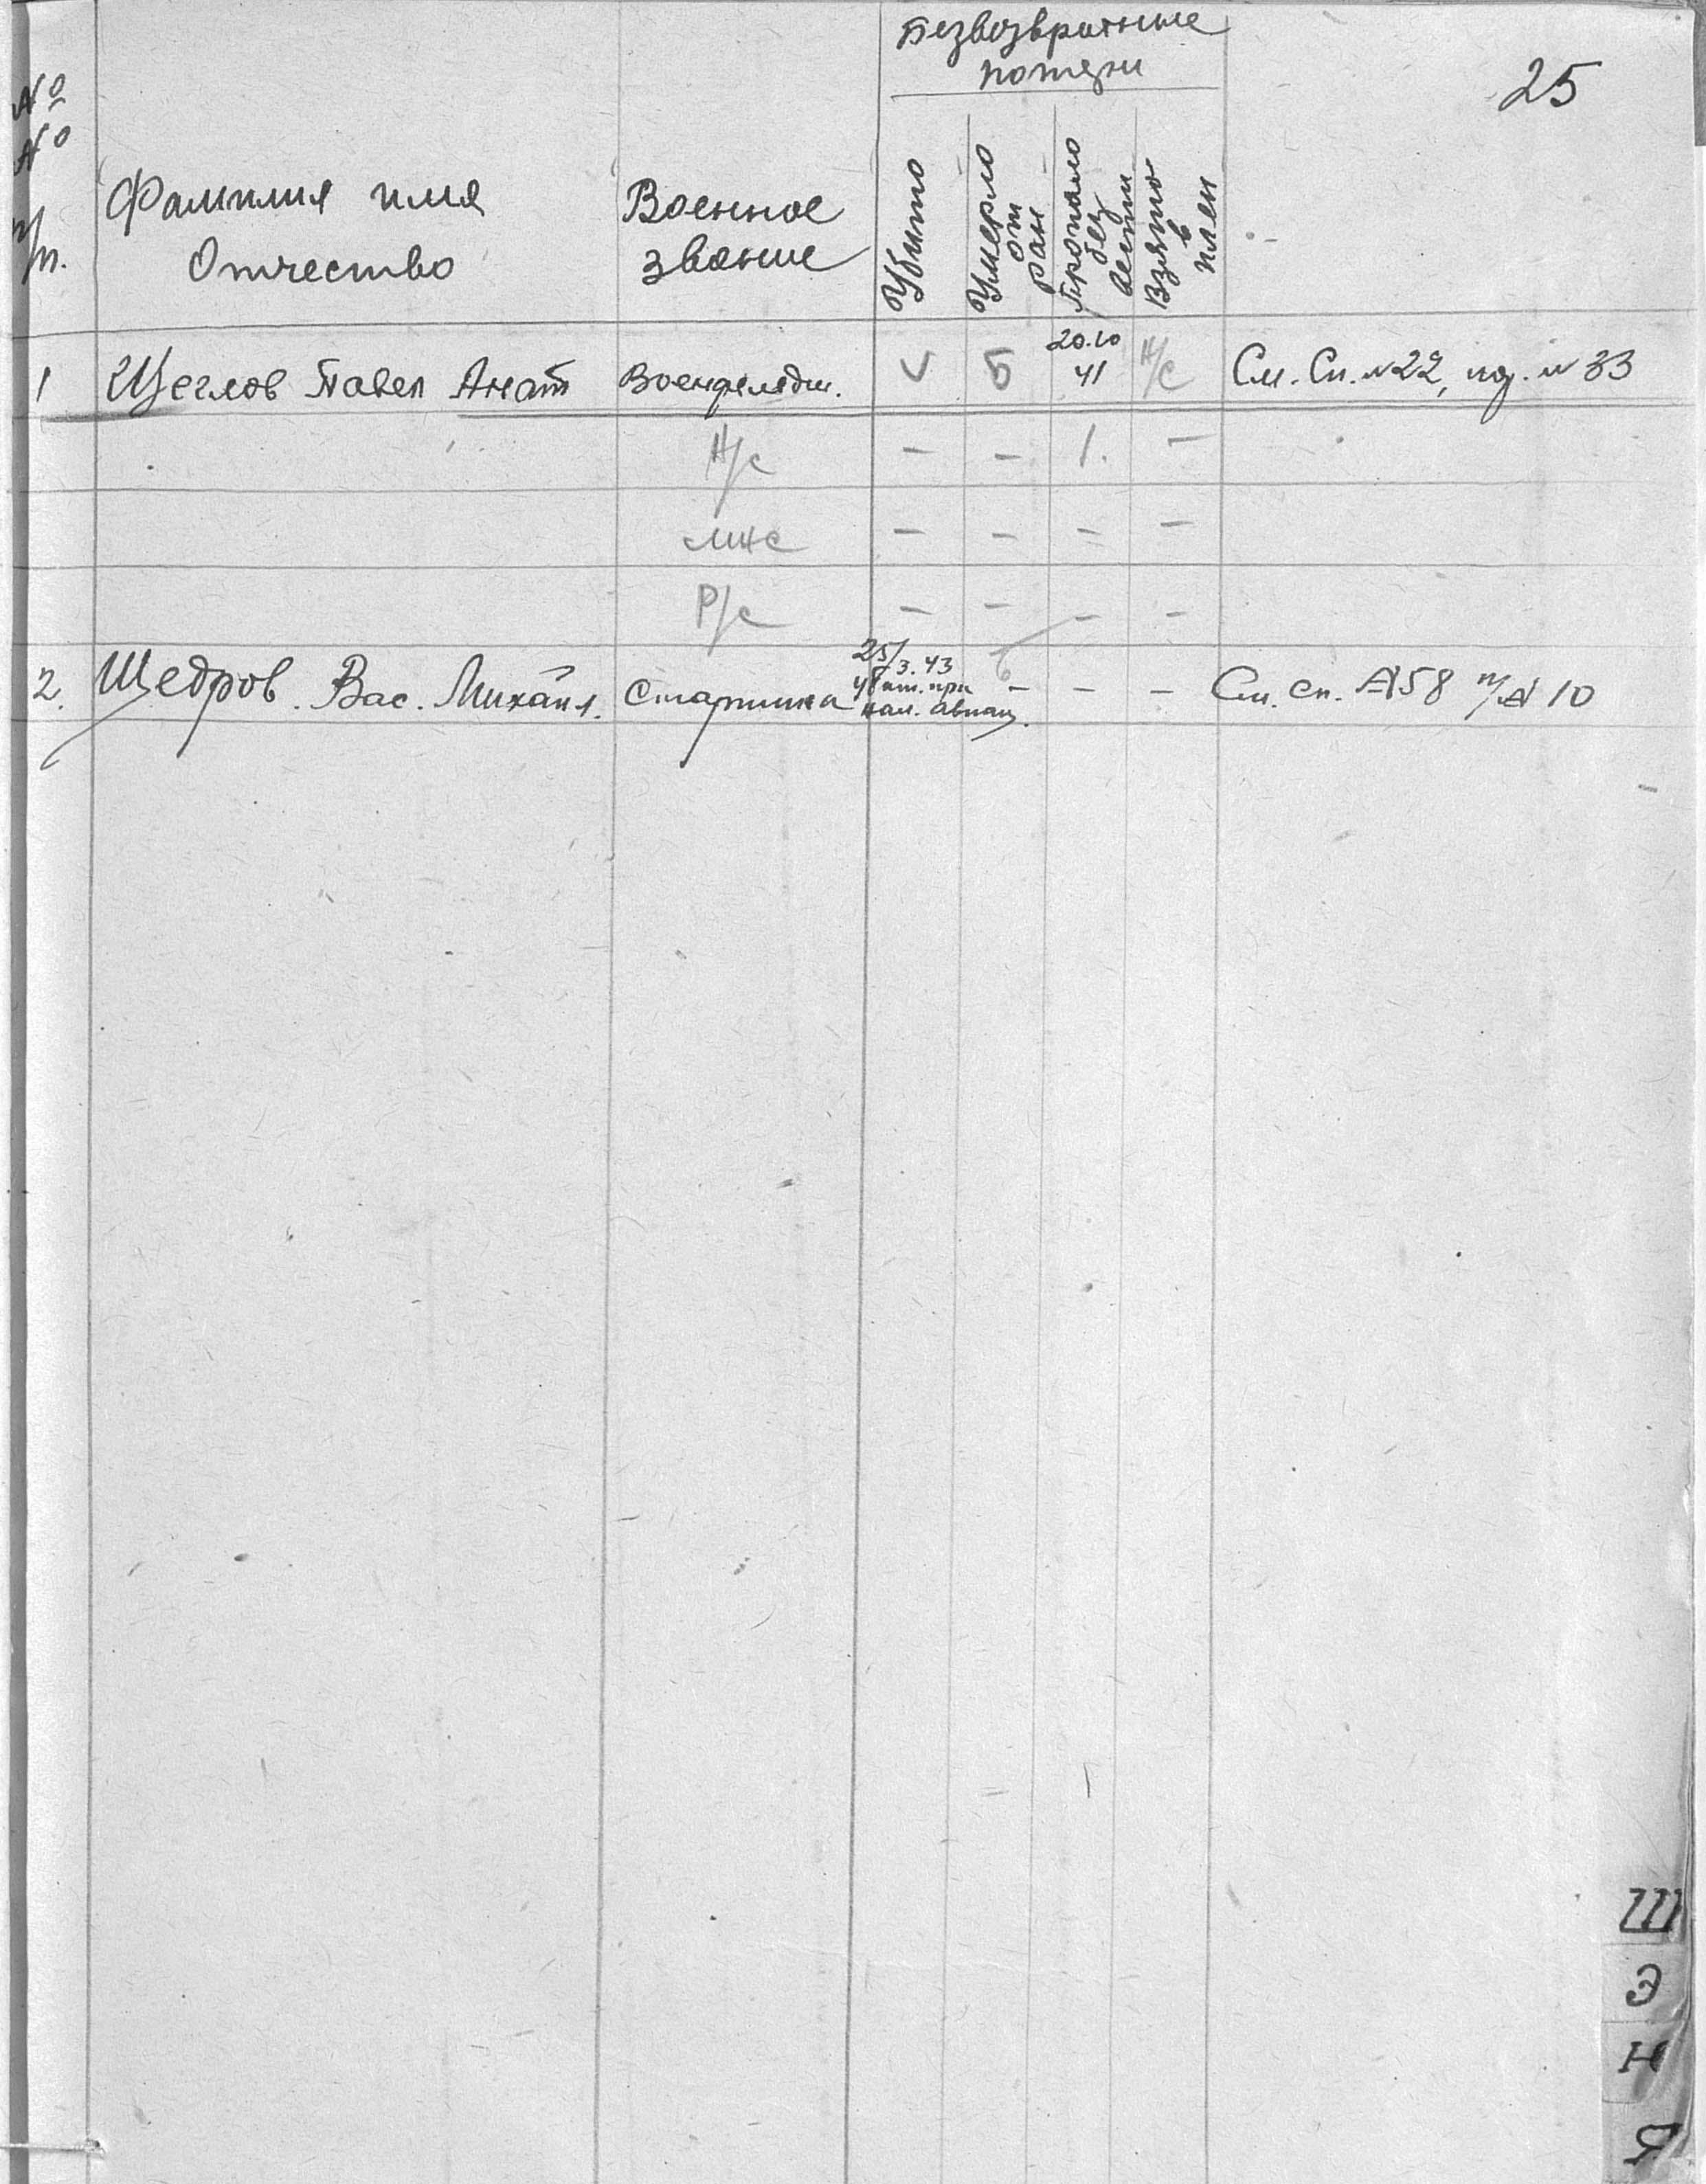 Безвозвратные
потери
25
№
№
п/п.
Фамилия имя
Отчество
Военное
звание
Убито
Умерло
от
ран
Пропало
без
вести
Взято
в
плен
1 Щеглов Павел Анат Военфельдш. V Б 20.10 41 Н/С См. Сп. №22, пор. № 33
Н/С – – 1. –
МНС – – – –
Р/С – – – –
2. Щедров. Вас. Михаил. Старшина 25/3.43 при нал. авиац. – – – См. сп. №58 п/№ 10
Ш
Э
Н
Я